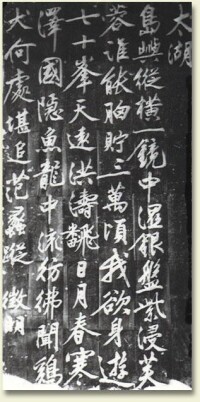 太湖
島嶼縱橫一鏡中溼銀盤紫浸芙
蓉誰能胸貯三萬頃我欲身遊
七十峯天遠洪濤翻日月春寒
澤國隱魚龍中流彷彿聞鷄
犬何處堪追范蠡蹤徵明